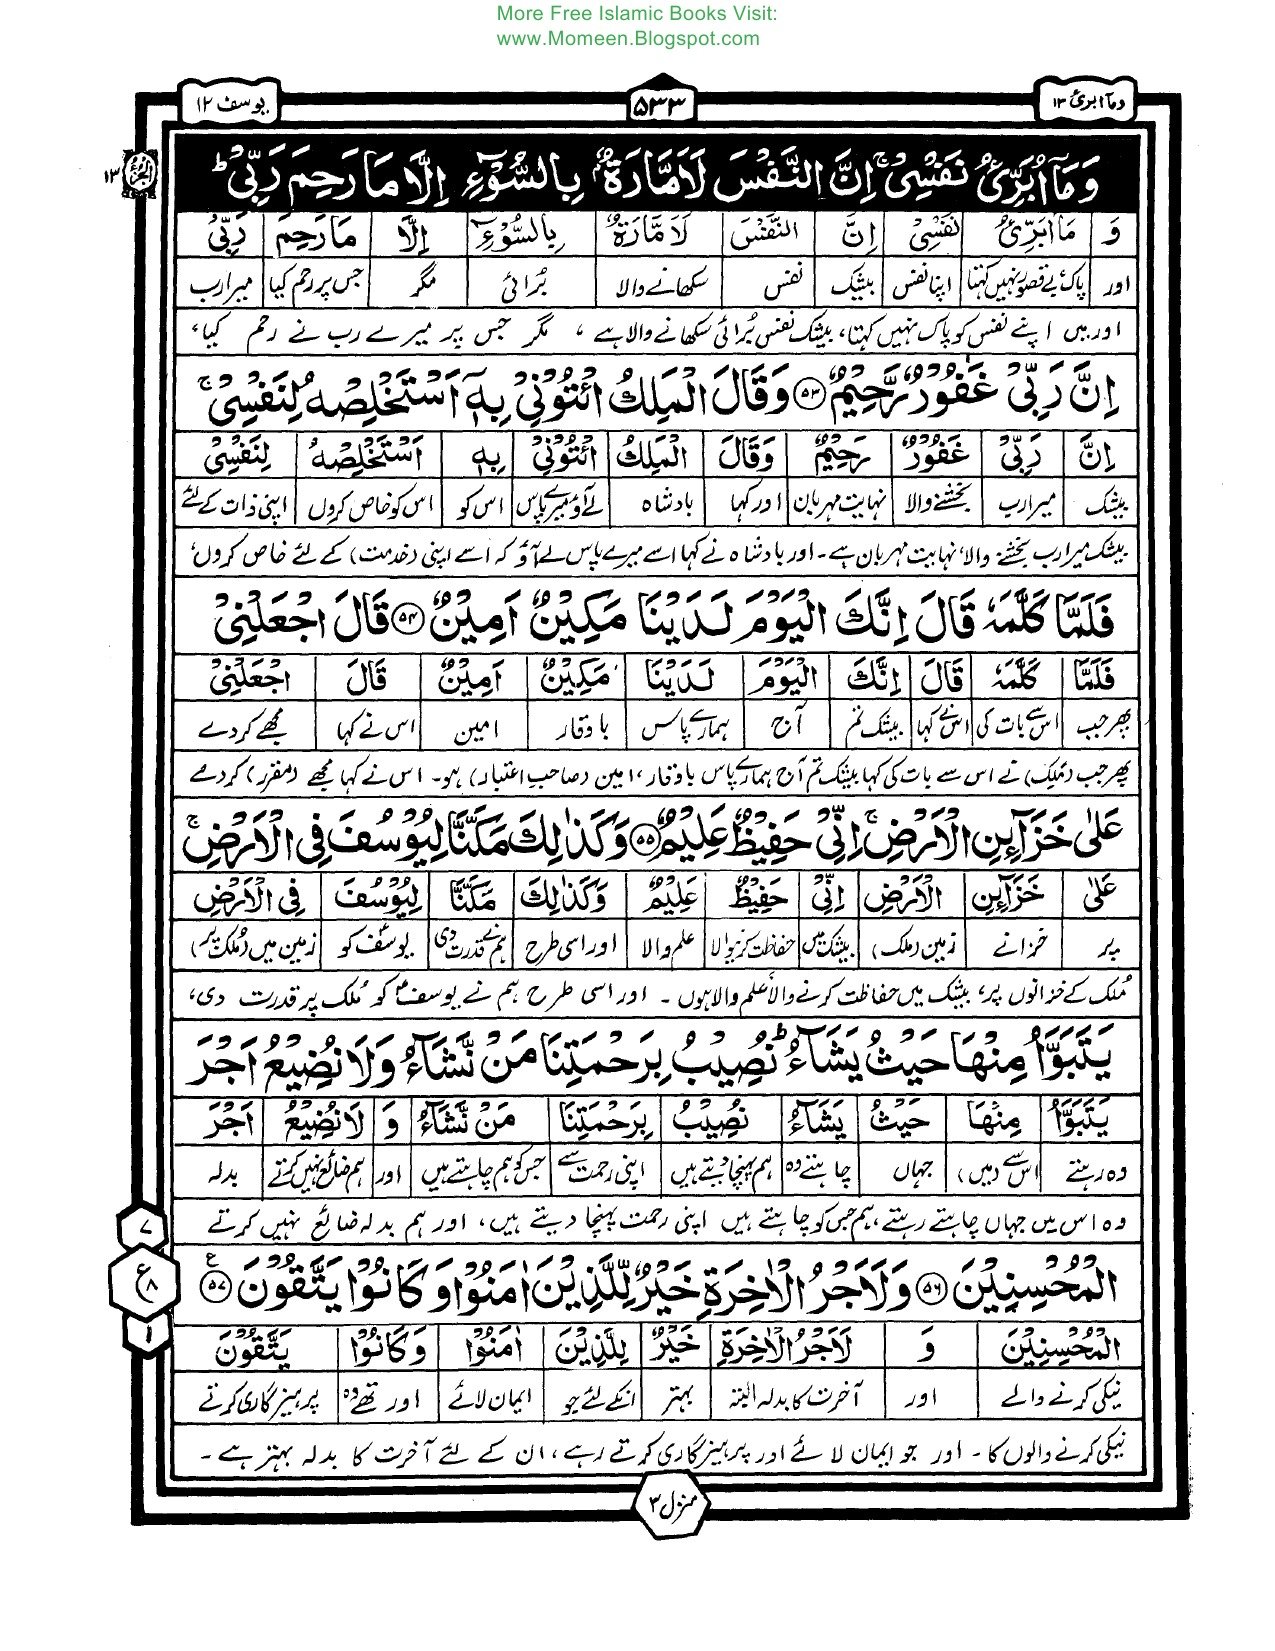 More Free Islamic Books Visit:
www.Momeen.Blogspot.com
وما ابرئ ۱۳
۵۳۳
یوسف ۱۲
۱۳
وَمَآ اُبَرِّئُ نَفْسِیْ ۚ اِنَّ النَّفْسَ لَاَمَّارَةٌۢ بِالسُّوْٓءِ اِلَّا مَا رَحِمَ رَبِّیْ ؕ
وَ مَآ اُبَرِّئُ نَفْسِیْ اِنَّ النَّفْسَ لَاَمَّارَةٌۢ بِالسُّوْٓءِ اِلَّا مَا رَحِمَ رَبِّیْ
اور پاک بے قصور نہیں کہتا اپنا نفس بیشک نفس سکھانے والا بُرائی مگر جس پر رحم کیا میرا رب
اور میں اپنے نفس کو پاک نہیں کہتا، بیشک نفس بُرائی سکھانے والا ہے ، مگر جس پر میرے رب نے رحم کیا،
اِنَّ رَبِّیْ غَفُوْرٌ رَّحِیْمٌ ۵۳ وَقَالَ الْمَلِكُ ائْتُوْنِیْ بِهٖٓ اَسْتَخْلِصْهُ لِنَفْسِیْ ۚ
اِنَّ رَبِّیْ غَفُوْرٌ رَّحِیْمٌ وَقَالَ الْمَلِكُ ائْتُوْنِیْ بِهٖٓ اَسْتَخْلِصْهُ لِنَفْسِیْ
بیشک میرا رب بخشنے والا نہایت مہربان اور کہا بادشاہ لے آؤ میرے پاس اس کو اس کو خاص کروں اپنی ذات کے لئے
بیشک میرا رب بخشنے والا، نہایت مہربان ہے۔ اور بادشاہ نے کہا اسے میرے پاس لے آؤ کہ اسے اپنی (خدمت) کے لئے خاص کروں،
فَلَمَّا كَلَّمَهٗ قَالَ اِنَّكَ الْیَوْمَ لَدَیْنَا مَكِیْنٌ اَمِیْنٌ ۵۴ قَالَ اجْعَلْنِیْ
فَلَمَّا كَلَّمَهٗ قَالَ اِنَّكَ الْیَوْمَ لَدَیْنَا مَكِیْنٌ اَمِیْنٌ قَالَ اجْعَلْنِیْ
پھر جب اس سے بات کی اس نے کہا بیشک تم آج ہمارے پاس باوقار امین اس نے کہا مجھے کر دے
پھر جب (ملک) نے اس سے بات کی کہا بیشک تم آج ہمارے پاس باوقار، امین (صاحب اعتبار) ہو۔ اس نے کہا مجھے (مقرر) کر دے
عَلٰی خَزَآئِنِ الْاَرْضِ ۚ اِنِّیْ حَفِیْظٌ عَلِیْمٌ ۵۵ وَكَذٰلِكَ مَكَّنَّا لِیُوْسُفَ فِی الْاَرْضِ ۚ
عَلٰی خَزَآئِنِ الْاَرْضِ اِنِّیْ حَفِیْظٌ عَلِیْمٌ وَكَذٰلِكَ مَكَّنَّا لِیُوْسُفَ فِی الْاَرْضِ
پر خزانے زمین (ملک) بیشک میں حفاظت کرنیوالا علم والا اور اسی طرح ہم نے قدرت دی یوسفؑ کو زمین میں (مُلک پر)
مُلک کے خزانوں پر، بیشک میں حفاظت کرنے والا، علم والا ہوں ۔ اور اسی طرح ہم نے یوسفؑ کو مُلک پر قدرت دی،
یَتَبَوَّاُ مِنْهَا حَیْثُ یَشَآءُ ؕ نُصِیْبُ بِرَحْمَتِنَا مَنْ نَّشَآءُ وَلَا نُضِیْعُ اَجْرَ
یَتَبَوَّاُ مِنْهَا حَیْثُ یَشَآءُ نُصِیْبُ بِرَحْمَتِنَا مَنْ نَّشَآءُ وَ لَا نُضِیْعُ اَجْرَ
وہ رہتے اس سے (میں) جہاں چاہتے وہ ہم پہنچا دیتے ہیں اپنی رحمت سے جس کو ہم چاہتے ہیں اور ہم ضائع نہیں کرتے بدلہ
وہ اس میں جہاں چاہتے رہتے، ہم جس کو چاہتے ہیں اپنی رحمت پہنچا دیتے ہیں، اور ہم بدلہ ضائع نہیں کرتے
الْمُحْسِنِیْنَ ۵۶ وَلَاَجْرُ الْاٰخِرَةِ خَیْرٌ لِّلَّذِیْنَ اٰمَنُوْا وَكَانُوْا یَتَّقُوْنَ ۵۷ ع
۷
ع ۸
۱
الْمُحْسِنِیْنَ وَ لَاَجْرُ الْاٰخِرَةِ خَیْرٌ لِّلَّذِیْنَ اٰمَنُوْا وَكَانُوْا یَتَّقُوْنَ
نیکی کرنے والے اور آخرت کا بدلہ البتہ بہتر انکے لئے جو ایمان لائے اور تھے وہ پرہیزگاری کرتے
نیکی کرنے والوں کا ۔ اور جو ایمان لائے اور پرہیزگاری کرتے رہے، ان کے لئے آخرت کا بدلہ بہتر ہے ۔
منزل ۳